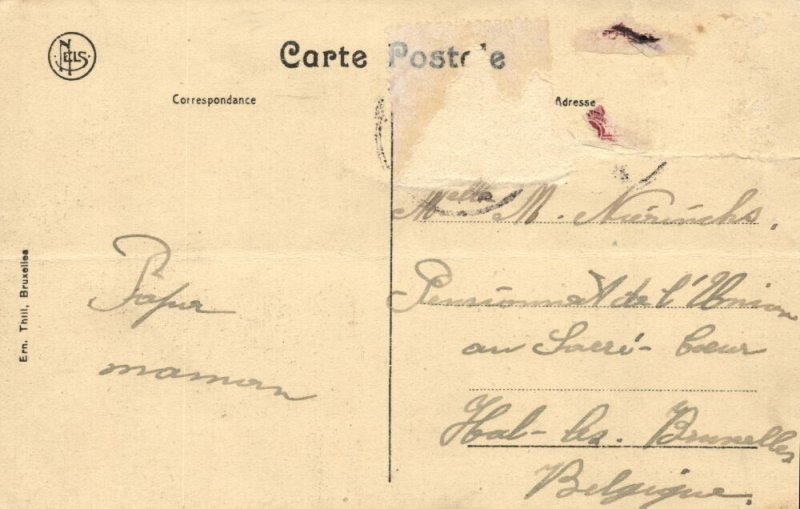 NELS
Carte Postale
Correspondance
Adresse
Ern. Thill, Bruxelles
Papa
maman
Melle M. Nièrinchs,
Pensionnat de l'Union
au Sacré-Coeur
Hal-lez-Bruxelles
Belgique.